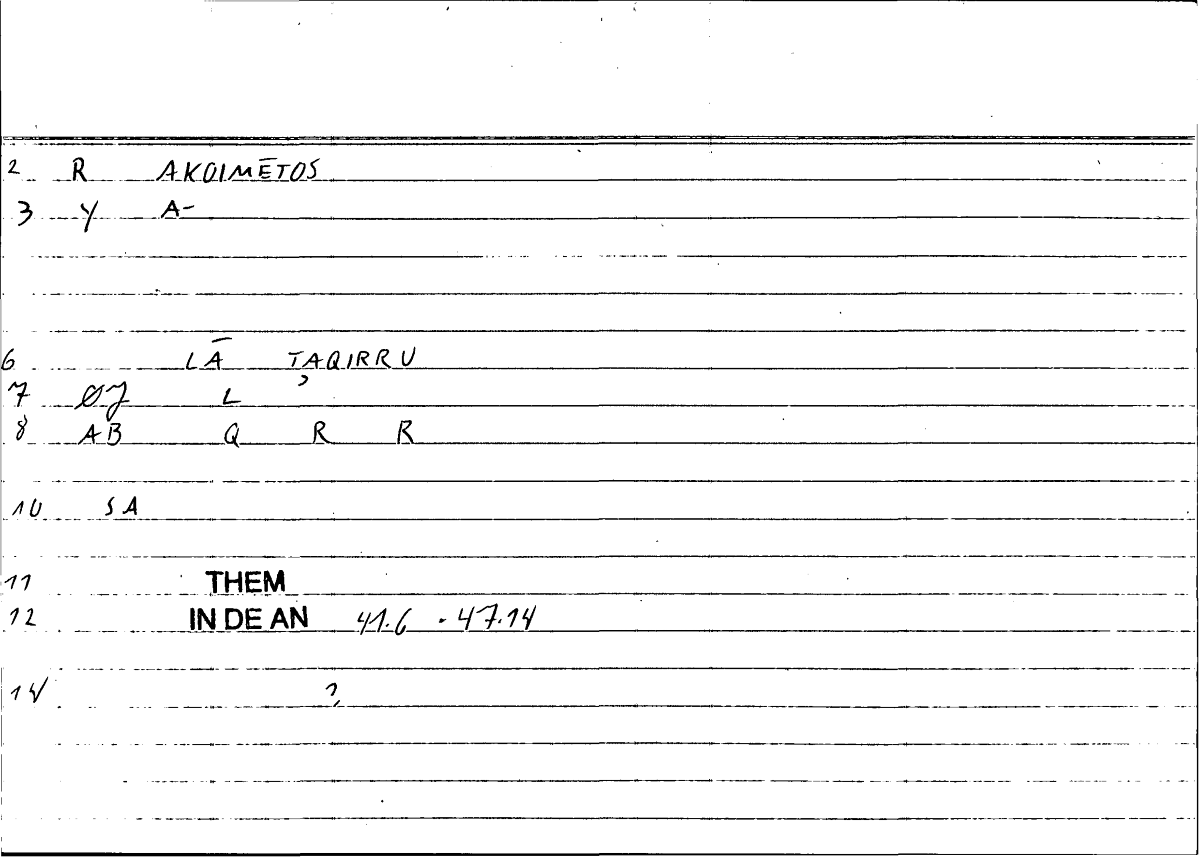 2 R AKOIMĒTOS
3 Y A-
6 LĀ TAQIRRU
7 ØJ L
8 AB Q R R
10 SA
11 THEM
12 IN DE AN 41.6 - 47.14
14 ?